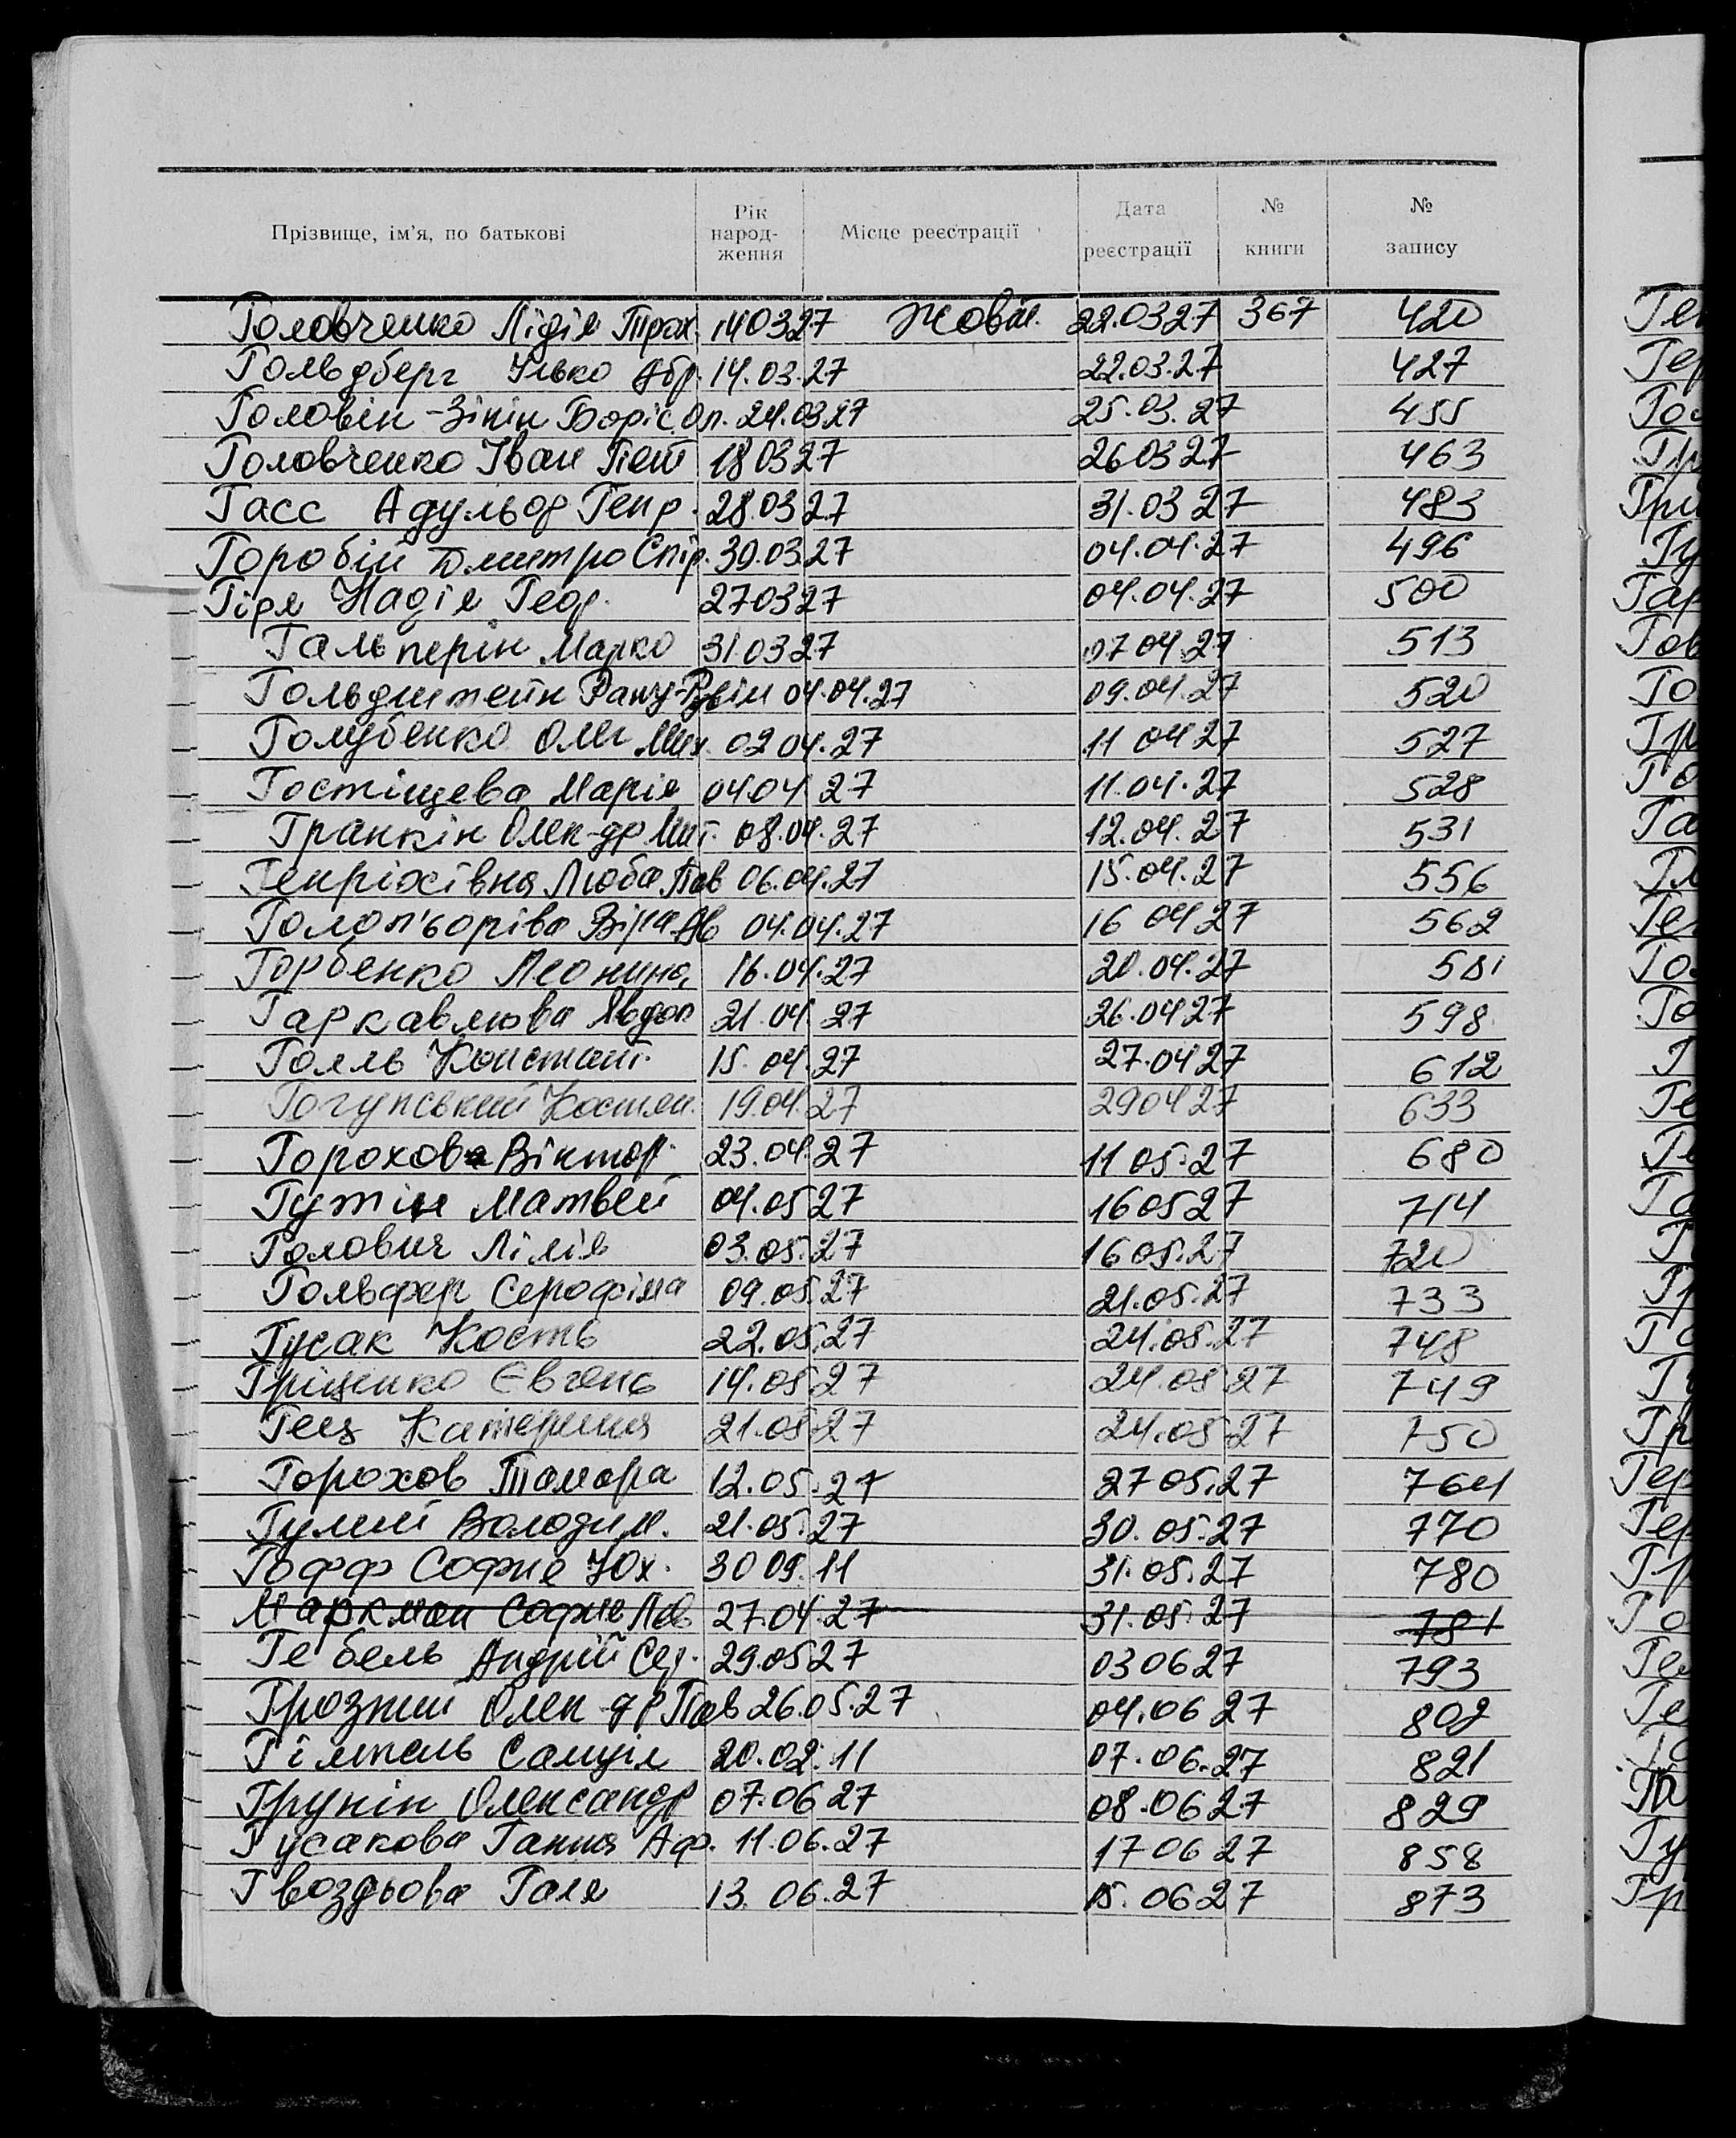 Прізвище, ім'я, по батькові Рік народ-ження Місце реєстрації Дата реєстрації № книги № запису
Головченко Лідія Трох. 140327 Жовт. 22.0327 367 420
Гольдберг Ілько Абр. 14.03.27 22.03.27 427
Головін-Зінін Боріс Ол. 24.0327 25.03.27 455
Головченко Іван Пет 180327 260327 463
Гасс Адульф Генр. 28.0327 31.0327 483
Горобій Дмитро Спір. 30.0327 04.04.27 496
Гіря Надія Геор. 270327 04.04.27 500
Гальперін Марко 310327 070427 513
Гольдштейн 04.04.27 09.04.27 520
Голубенко Олег Мих. 0204.27 11 0427 527
Гостіщева Марія 0404 27 11.04.27 528
Гранкін Олек-др Мит. 08.04.27 12.04.27 531
Генріхівна Люба Пав 06.04.27 15.04.27 556
Голоп'оріва Віра Ав 04.04.27 16 0427 562
Горбенко Леонина 16.04.27 20.04.27 581
Гаркавлюва Явдок 21.04.27 26.0427 598
Голль Констант. 15.04.27 27.0427 612
Гогунський Костян. 19.04.27 290427 633
Горохова Віктор. 23.04.27 11 05.27 680
Гутін Матвей 04.0527 160527 714
Голович Лілія 03.05.27 1605.27 720
Гольфер Серофіма 09.05.27 21.05.27 733
Гусак Кость 22.05.27 24.05.27 748
Гріщенко Євгень 14.0527 24.05 27 749
Гец Катерина 21.0527 24.05 27 750
Горохов Тамора 12.05.27 27 05.27 764
Гулий Володим. 21.05.27 30.05.27 770
Гофф Софие Юх. 30 09.11 31.05.27 780
Маркман Софие Лв 27.04.27 31.05.27 781
Гебель Андрій Сер. 29.0527 030627 793
Грозний Олек-др Пав 26.05.27 04.06 27 802
Гілтель Самуіл 20.02.11 07.06.27 821
Грунін Олександр 07.0627 08.0627 829
Гусакова Ганна Аф. 11.06.27 170627 858
Гвоздьова Галя 13.06.27 15.0627 873